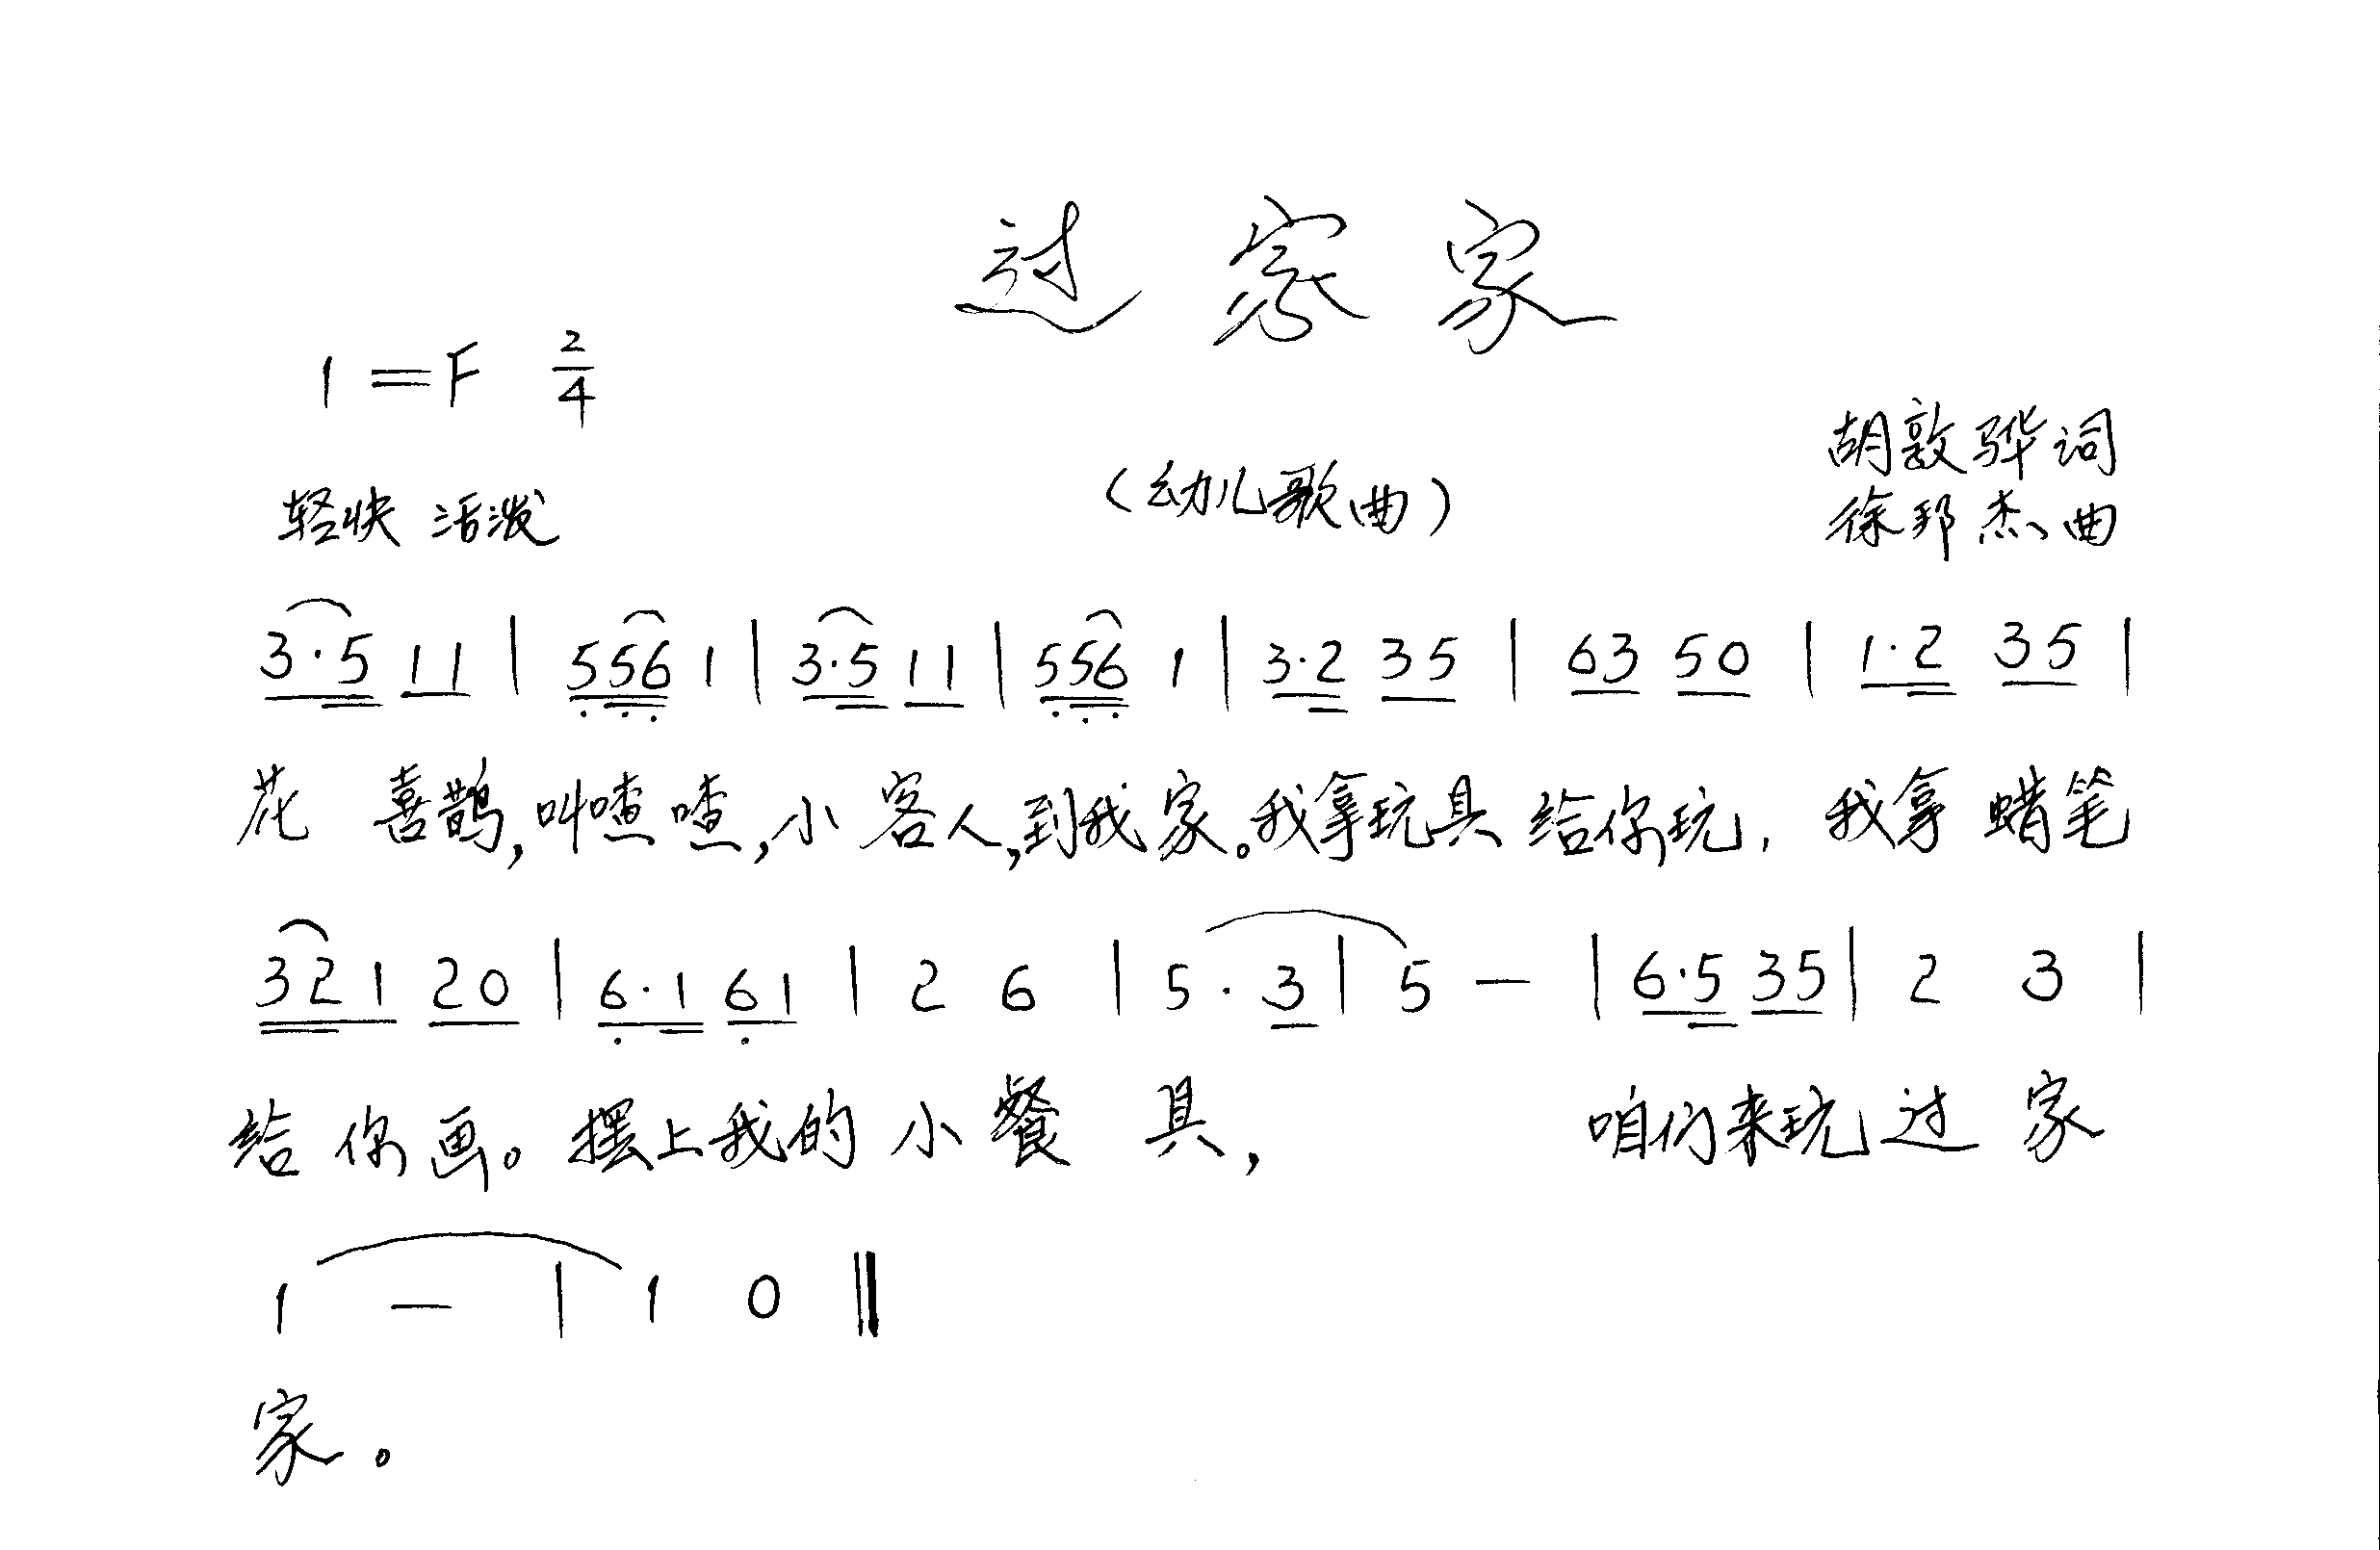 过家家
1=F 2/4
胡敦骅词
轻快 活泼 (幼儿歌曲) 徐邦杰曲
3·5 11 | 556 1 | 3·5 11 | 556 1 | 3·2 35 | 63 50 | 1·2 35 |
花 喜鹊,叫喳喳,小 客人,到我家。我拿玩具 给你玩, 我拿 蜡笔
321 20 | 6·1 61 | 2 6 | 5·3 | 5 — | 6·5 35 | 2 3 |
给 你 画。摆上我的 小 餐 具, 咱们来玩 过 家
1 — | 1 0 ‖
家。